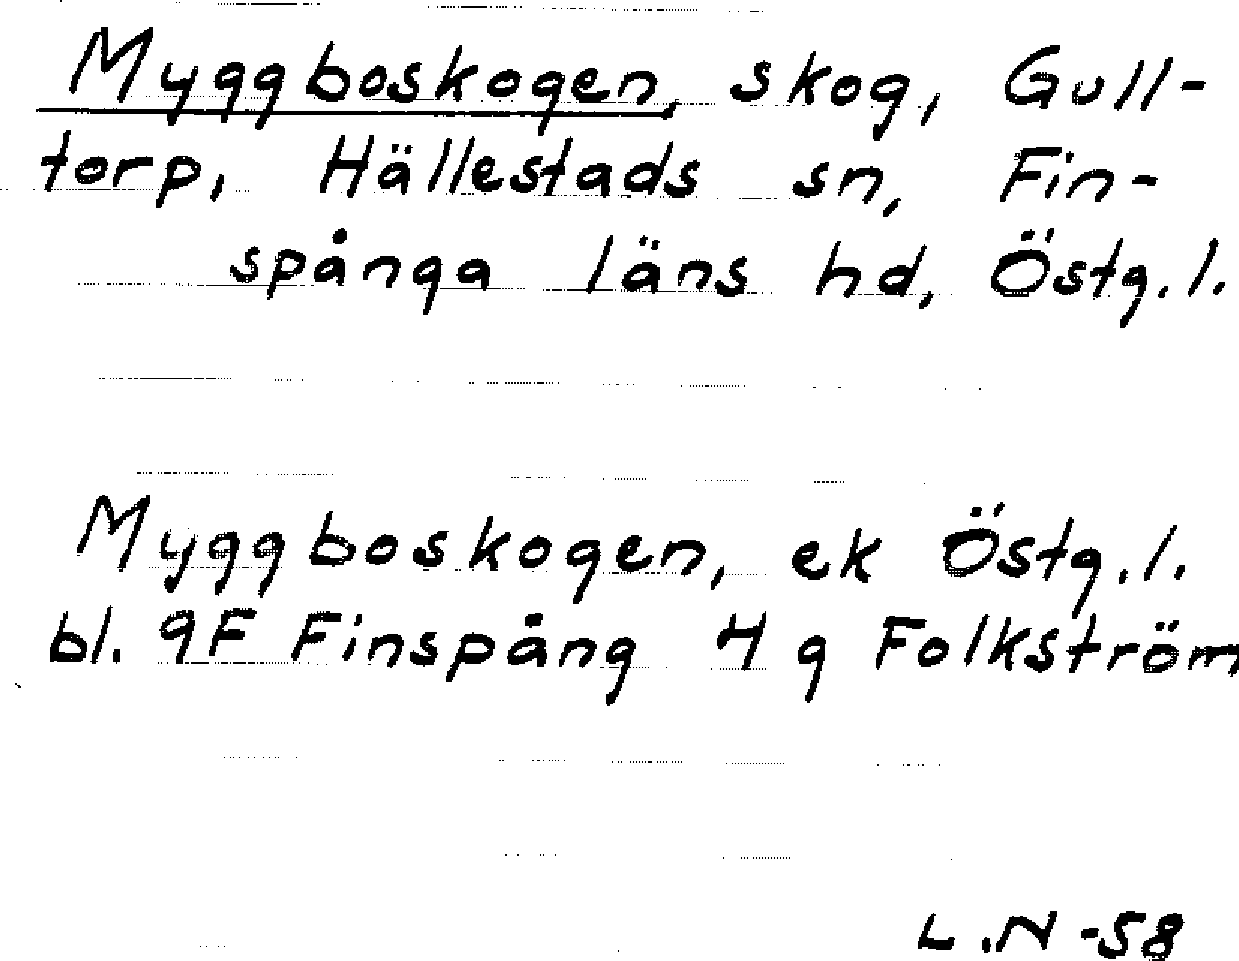 Myggboskogen, skog, Gull-
torp, Hällestads sn, Fin-
spånga läns hd, Östg.l.
Myggboskogen, ek Östg.l.
bl. 9F Finspång 4 g Folkström
L.N -58